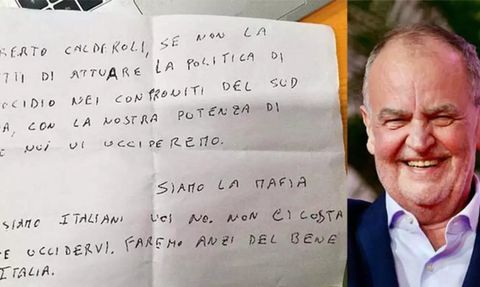 BERTO CALDEROLI, SE NON LA
TTI DI ATTUARE LA POLITICA DI
CCIDIO NEI CONFRONTI DEL SUD
A, CON LA NOSTRA POTENZA DI
E NOI VI UCCIDEREMO.
SIAMO LA MAFIA
SIAMO ITALIANI VOI NO. NON CI COSTA
E UCCIDERVI. FAREMO ANZI DEL BENE
ITALIA.